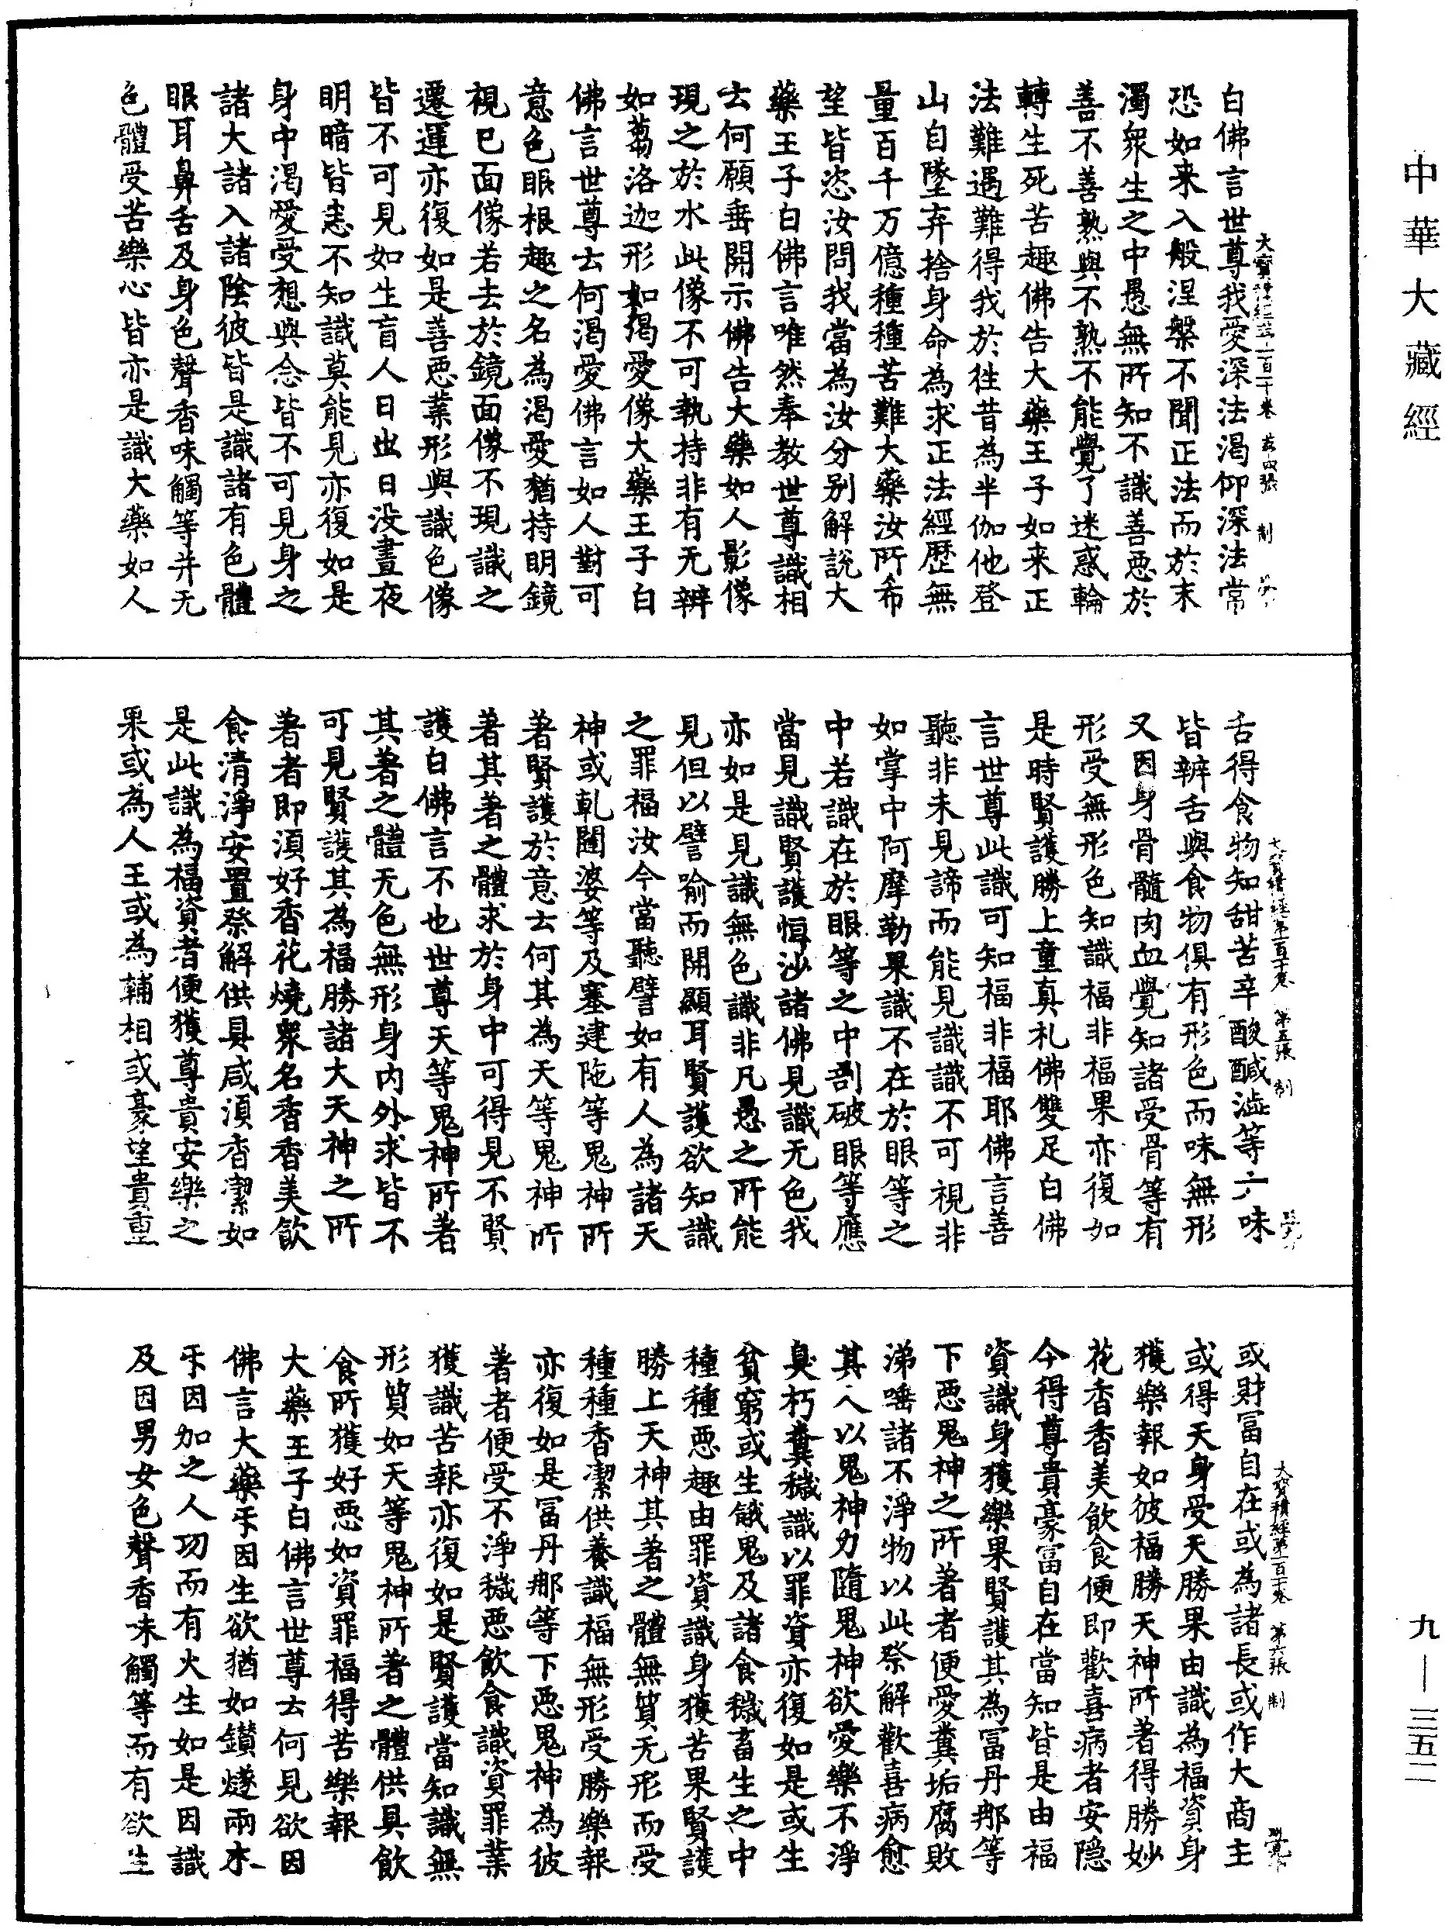 中華大藏經
白佛言世尊我愛深法渴仰深法常
恐如来入般涅槃不聞正法而於末
濁衆生之中愚無所知不識善惡於
善不善熟與不熟不能覺了迷惑輪
轉生死苦趣佛告大藥王子如来正
法難遇難得我於往昔為半伽他登
山自墜弃捨身命為求正法經歷無
量百千万億種種苦難大藥汝所希
望皆恣汝問我當為汝分别解說大
藥王子白佛言唯然奉教世尊識相
云何願垂開示佛告大藥如人影像
現之於水此像不可執持非有无辨
如蒭洛迦形如渴愛像大藥王子白
佛言世尊云何渴愛佛言如人對可
意色眼根趣之名為渴愛猶持明鏡
視已面像若去於鏡面像不現識之
遷運亦復如是善惡業形與識色像
皆不可見如生盲人日出日没晝夜
明暗皆悉不知識莫能見亦復如是
身中渴愛受想與念皆不可見身之
諸大諸入諸陰彼皆是識諸有色體
眼耳鼻舌及身色聲香味觸等并无
色體受苦樂心皆亦是識大藥如人
舌得食物知甜苦辛酸醎澁等六味
皆辨舌與食物俱有形色而味無形
又因身骨髓肉血覺知諸受骨等有
形受無形色知識福非福果亦復如
是時賢護勝上童真礼佛雙足白佛
言世尊此識可知福非福耶佛言善
聽非未見諦而能見識識不可視非
如掌中阿摩勒果識不在於眼等之
中若識在於眼等之中剖破眼等應
當見識賢護恒沙諸佛見識无色我
亦如是見識無色識非凡愚之所能
見但以譬喻而開顯耳賢護欲知識
之罪福汝今當聽譬如有人為諸天
神或乹闥婆等及塞建陁等鬼神所
著賢護於意云何其為天等鬼神所
著其著之體求於身中可得見不賢
護白佛言不也世尊天等鬼神所著
其著之體无色無形身内外求皆不
可見賢護其為福勝諸大天神之所
著者即須好香花燒衆名香香美飲
食清淨安置祭解供具咸須香潔如
是此識為福資者便獲尊貴安樂之
果或為人王或為輔相或豪望貴重
大寶積經第一百一十卷 第六張 制
或財冨自在或為諸長或作大商主
或得天身受天勝果由識為福資身
獲樂報如彼福勝天神所著得勝妙
花香香美飲食便即歡喜病者安隱
今得尊貴豪富自在當知皆是由福
資識身獲樂果賢護其為冨丹那等
下惡鬼神之所著者便愛糞垢腐敗
涕唾諸不淨物以此祭解歡喜病愈
其人以鬼神力隨鬼神欲愛樂不淨
臭朽糞穢識以罪資亦復如是或生
貧窮或生餓鬼及諸食穢畜生之中
種種惡趣由罪資識身獲苦果賢護
勝上天神其著之體無質无形而受
種種香潔供養識福無形受勝樂報
亦復如是冨丹那等下惡鬼神為彼
著者便受不淨穢惡飲食識資罪業
獲識苦報亦復如是賢護當知識無
形質如天等鬼神所著之體供具飲
食所獲好惡如資罪福得苦樂報
大藥王子白佛言世尊云何見欲因
佛言大藥㸦因生欲猶如鑚燧兩木
㸦因加之人功而有火生如是因識
及因男女色聲香味觸等而有欲生
九—三五二